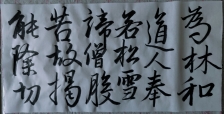 為林和
道人奉
若松雪
諦僧股
苦故揭
能除切